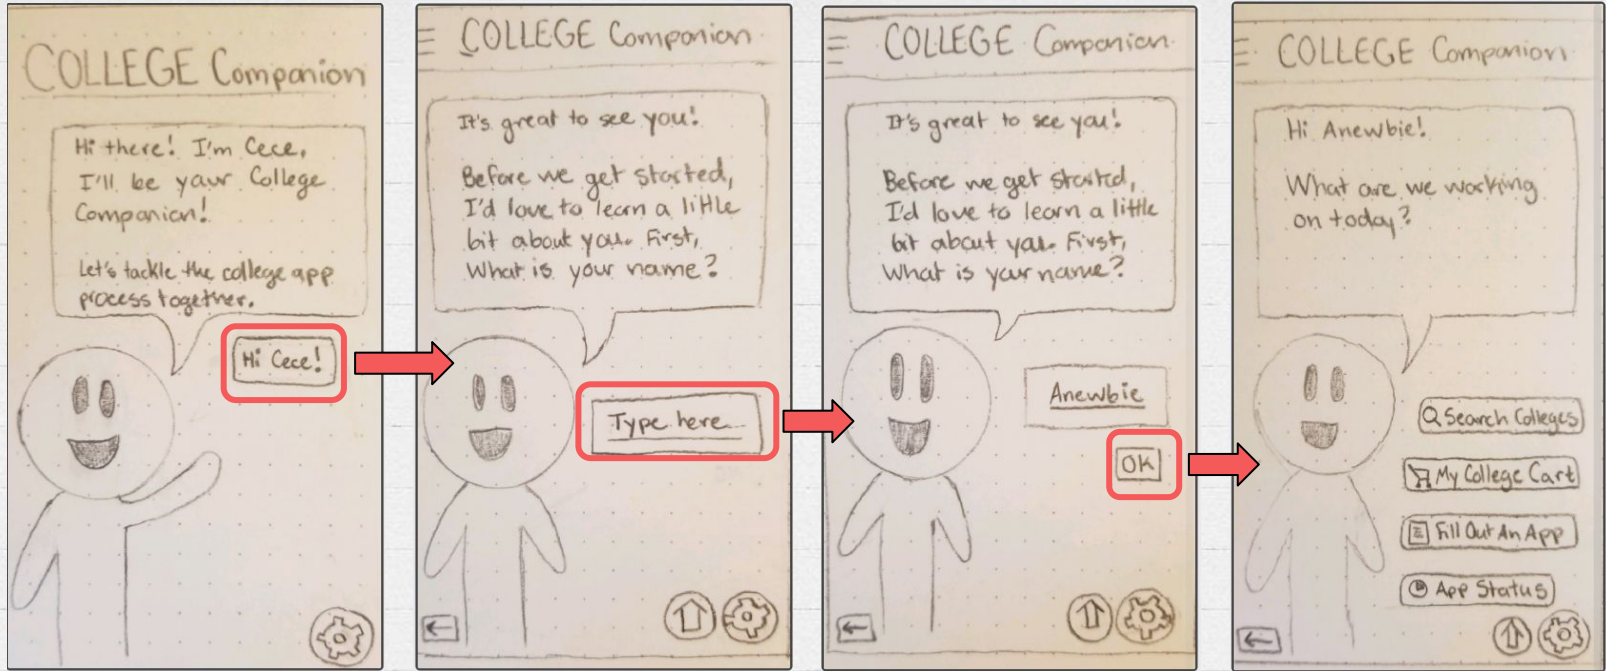 COLLEGE Companion
Hi there! I'm Cece,
I'll be your College
Companion!
Let's tackle the college app
process together.
Hi Cece!
COLLEGE Companion
It's great to see you!
Before we get started,
I'd love to learn a little
bit about you. First,
What is your name?
Type here
COLLEGE Companion
It's great to see you!
Before we get started,
I'd love to learn a little
bit about you. First,
What is your name?
Anewbie
OK
COLLEGE Companion
Hi Anewbie!
What are we working
on today?
Search Colleges
My College Cart
Fill Out An App
App Status